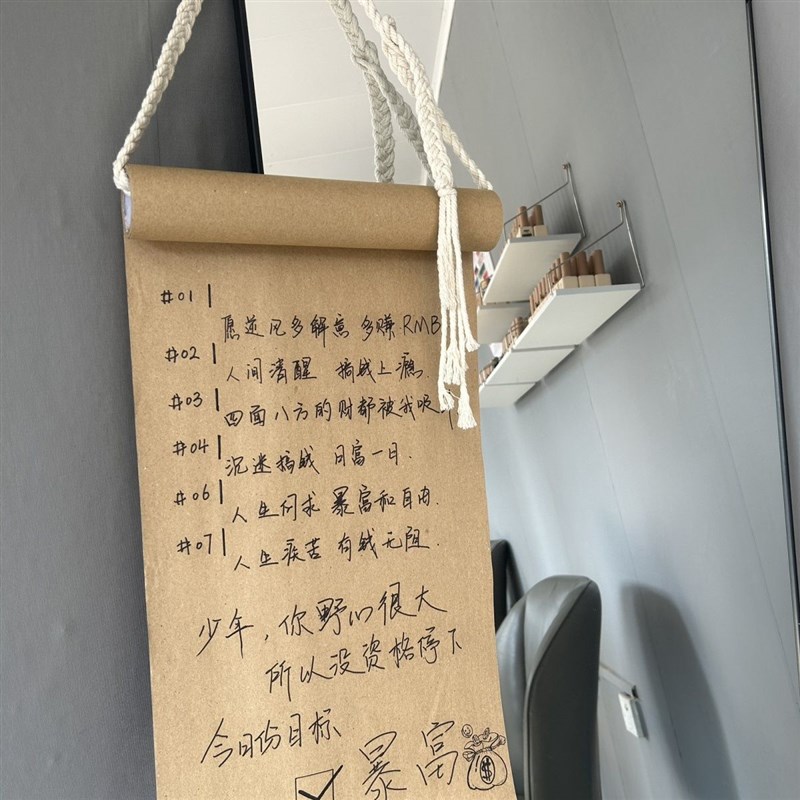 #01
愿逆风多解意 多赚RMB
#02
人间清醒 搞钱上瘾.
#03
四面八方的财都被我吸
#04
沉迷搞钱 日富一日.
#06
人生何求 暴富和自由.
#07
人生疾苦 有钱无阻.
少年,你野心很大
所以没资格停下
今日份目标
暴富
$